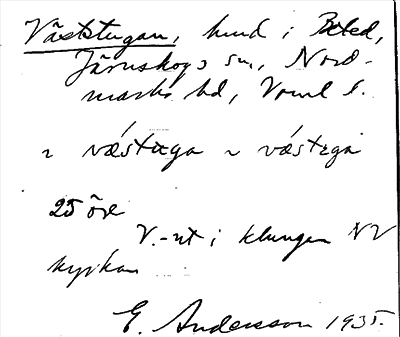 Väststugan, hmd i Böled,
Järnskogs sn, Nord-
marks hd, Vrml l.
~ vǽstuga ~ vǽstega
25 öre
V.-ut i klungen NV
kyrkan
E. Andersson 1935.